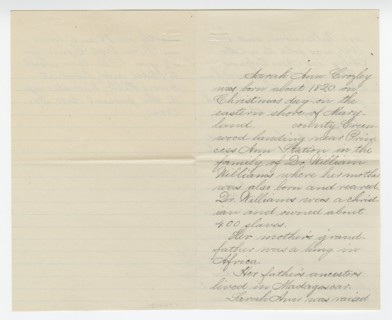 Sarah Ann Crozley
was born about 1820 on
Christmas day on the
eastern shore of Mary-
land county Green
wood landing near Prin-
cess Ann Station in the
family of Dr. William
Williams, where her mother
was also born and reared
Dr. Williams was a christ-
ian and owned about
400 slaves.
Her mother's grand-
father was a king in
Africa.
Her father's ancestors
lived in Madagascar.
Sarah Ann was raised